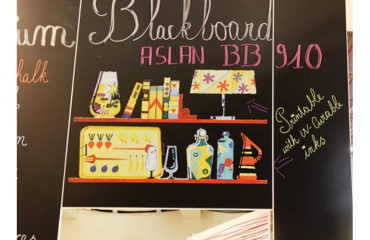 Blackboard
ium
ASLAN BB 910
chalk
Printable
with uv-curable
inks